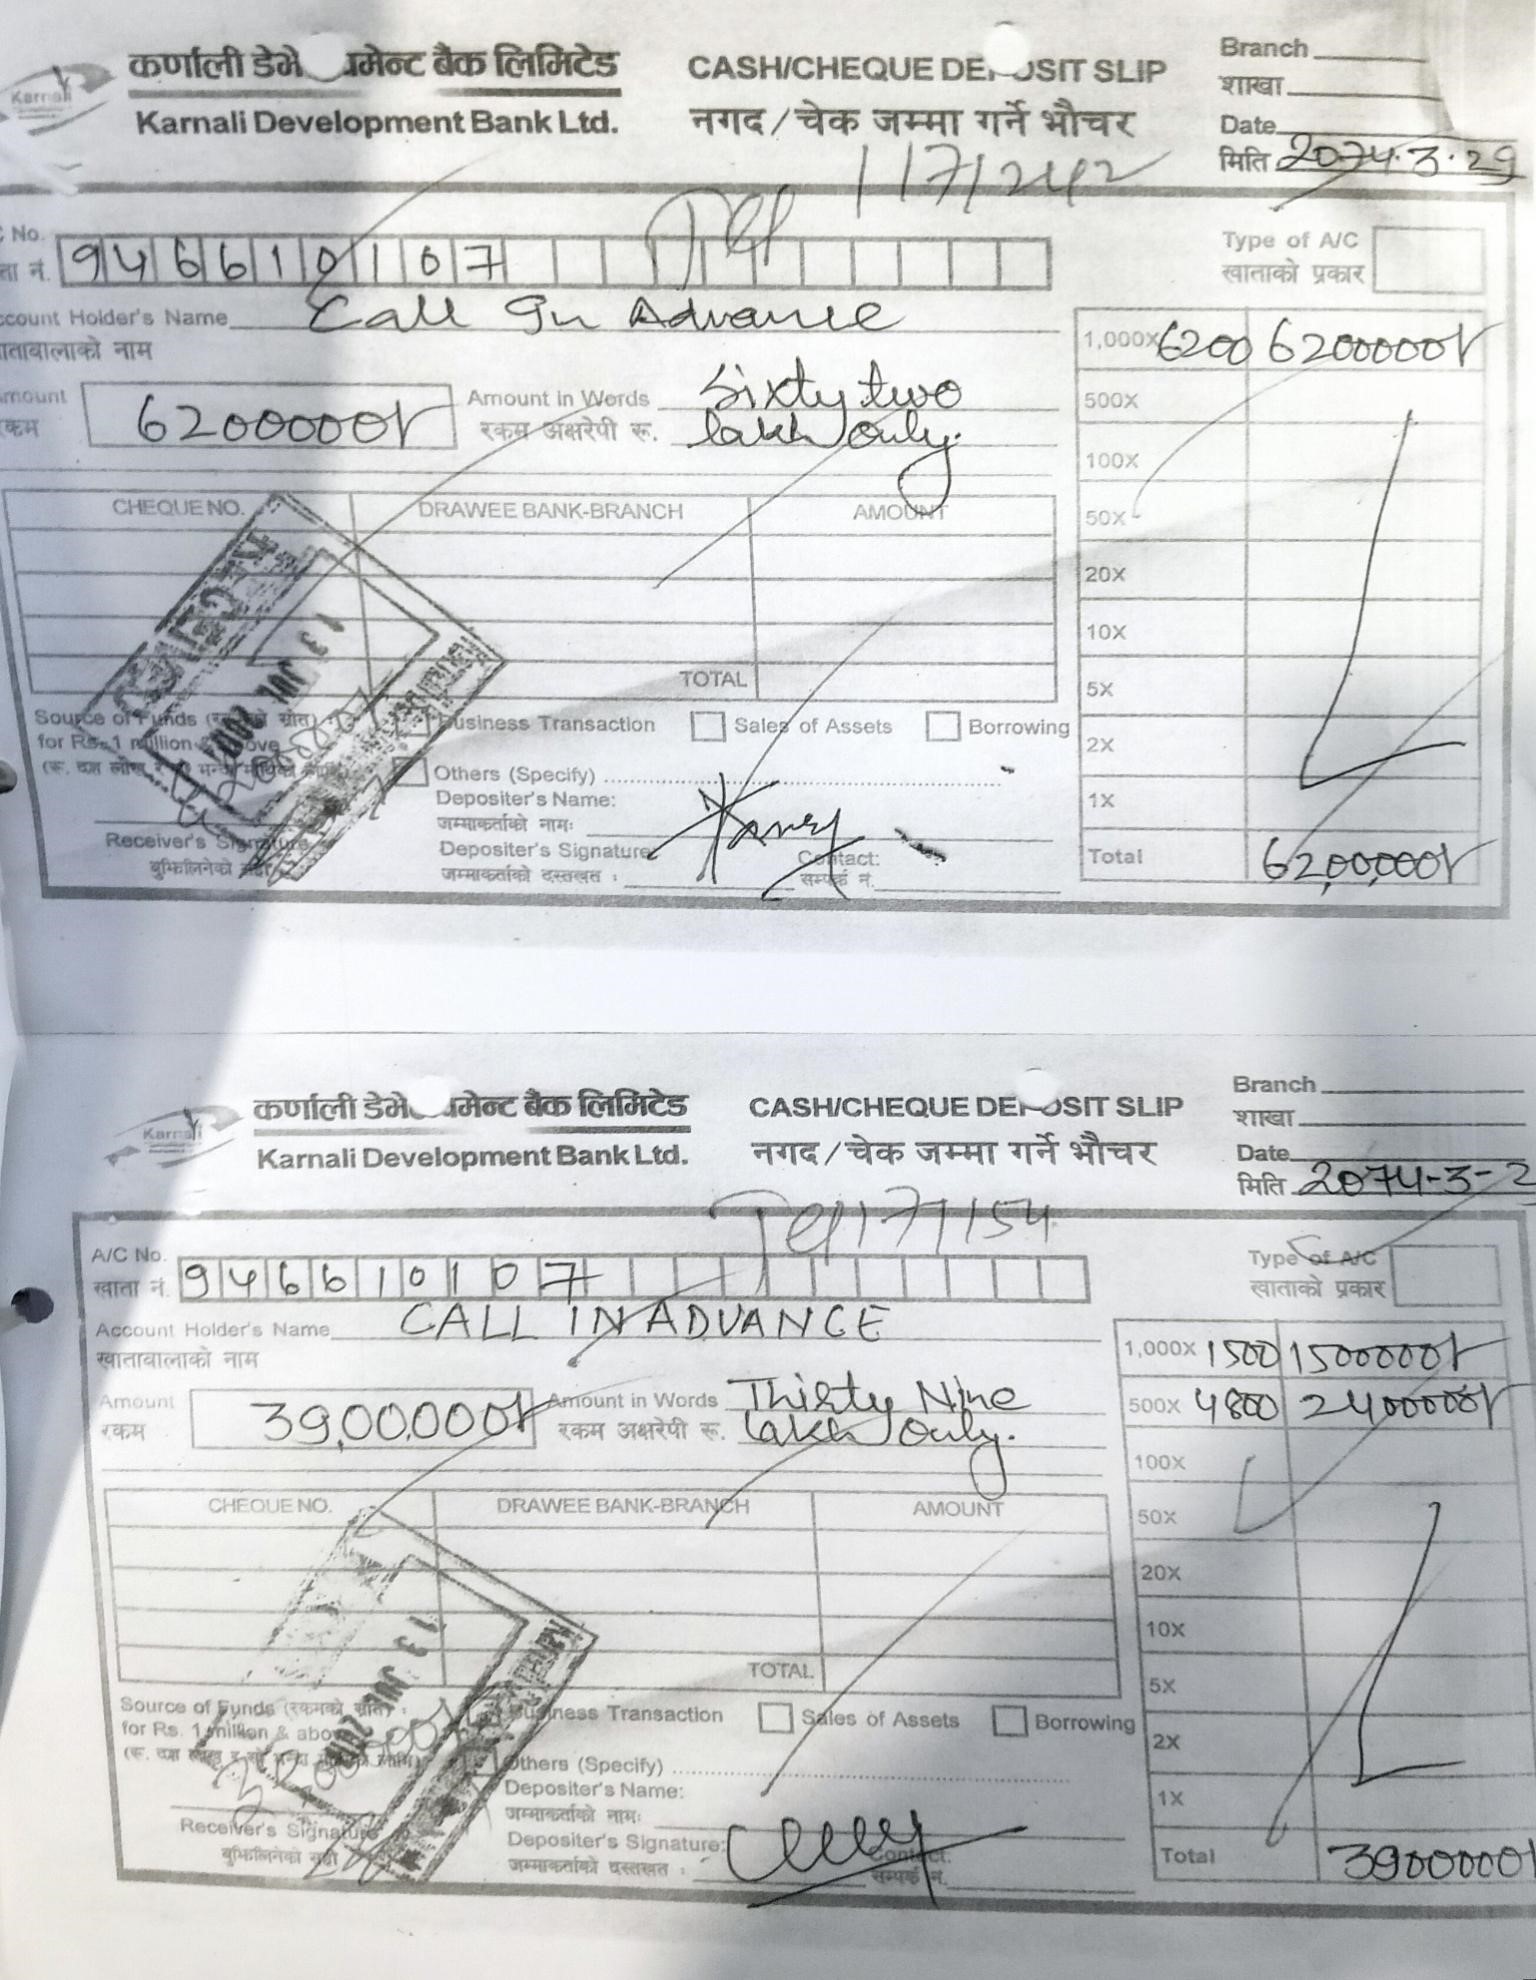 कर्णाली डेभे मेन्ट बैंक लिमिटेड
Karnali
Karnali Development Bank Ltd.
CASH/CHEQUE DE OSIT SLIP
नगद/चेक जम्मा गर्ने भौचर
Branch
शाखा
Date
मिति 2074.3.29
1171242
No.
नं. 946610107
Type of A/C
खाताको प्रकार
ccount Holder's Name Call In Advance
ातावालाको नाम
1,000X 6200 6200000/-
mount
रकम 6200000/-
Amount in Words Sixty two
रकम अक्षरेपी रू. lakh only.
500X
100X
CHEQUE NO. DRAWEE BANK-BRANCH AMOUNT
50X
20X
10X
TOTAL
5X
Source of Funds (रकमको स्रोत)
for Rs. 1 million & above
Business Transaction Sales of Assets Borrowing
2X
Others (Specify)
Depositer's Name:
जम्माकर्ताको नामः
1X
RECEIVED
13 JUL 2017
Receiver's Signature
बुझिलिनेको सही
Depositer's Signature:
जम्माकर्ताको दस्तखत :
Contact:
सम्पर्क नं.
Total 62,00,000/-
कर्णाली डेभे मेन्ट बैंक लिमिटेड
Karnali
Karnali Development Bank Ltd.
CASH/CHEQUE DE OSIT SLIP
नगद/चेक जम्मा गर्ने भौचर
Branch
शाखा
Date
मिति 2074-3-2
1171154
A/C No.
खाता नं. 946610107
Type of A/C
खाताको प्रकार
Account Holder's Name CALL IN ADVANCE
खातावालाको नाम
1,000X 1500 1500000/-
Amount
रकम 39,00,000/-
Amount in Words Thirty Nine
रकम अक्षरेपी रू. lakh only.
500X 4800 2400000/-
100X
CHEQUE NO. DRAWEE BANK-BRANCH AMOUNT
50X
20X
10X
TOTAL
5X
Source of Funds (रकमको स्रोत) :
for Rs. 1 million & abov
Business Transaction Sales of Assets Borrowing
2X
Others (Specify)
Depositer's Name:
जम्माकर्ताको नामः
1X
13 JUL 2017
Receiver's Signature
बुझिलिनेको सही
Depositer's Signature:
जम्माकर्ताको दस्तखत :
Contact:
सम्पर्क नं.
Total 3900000/-